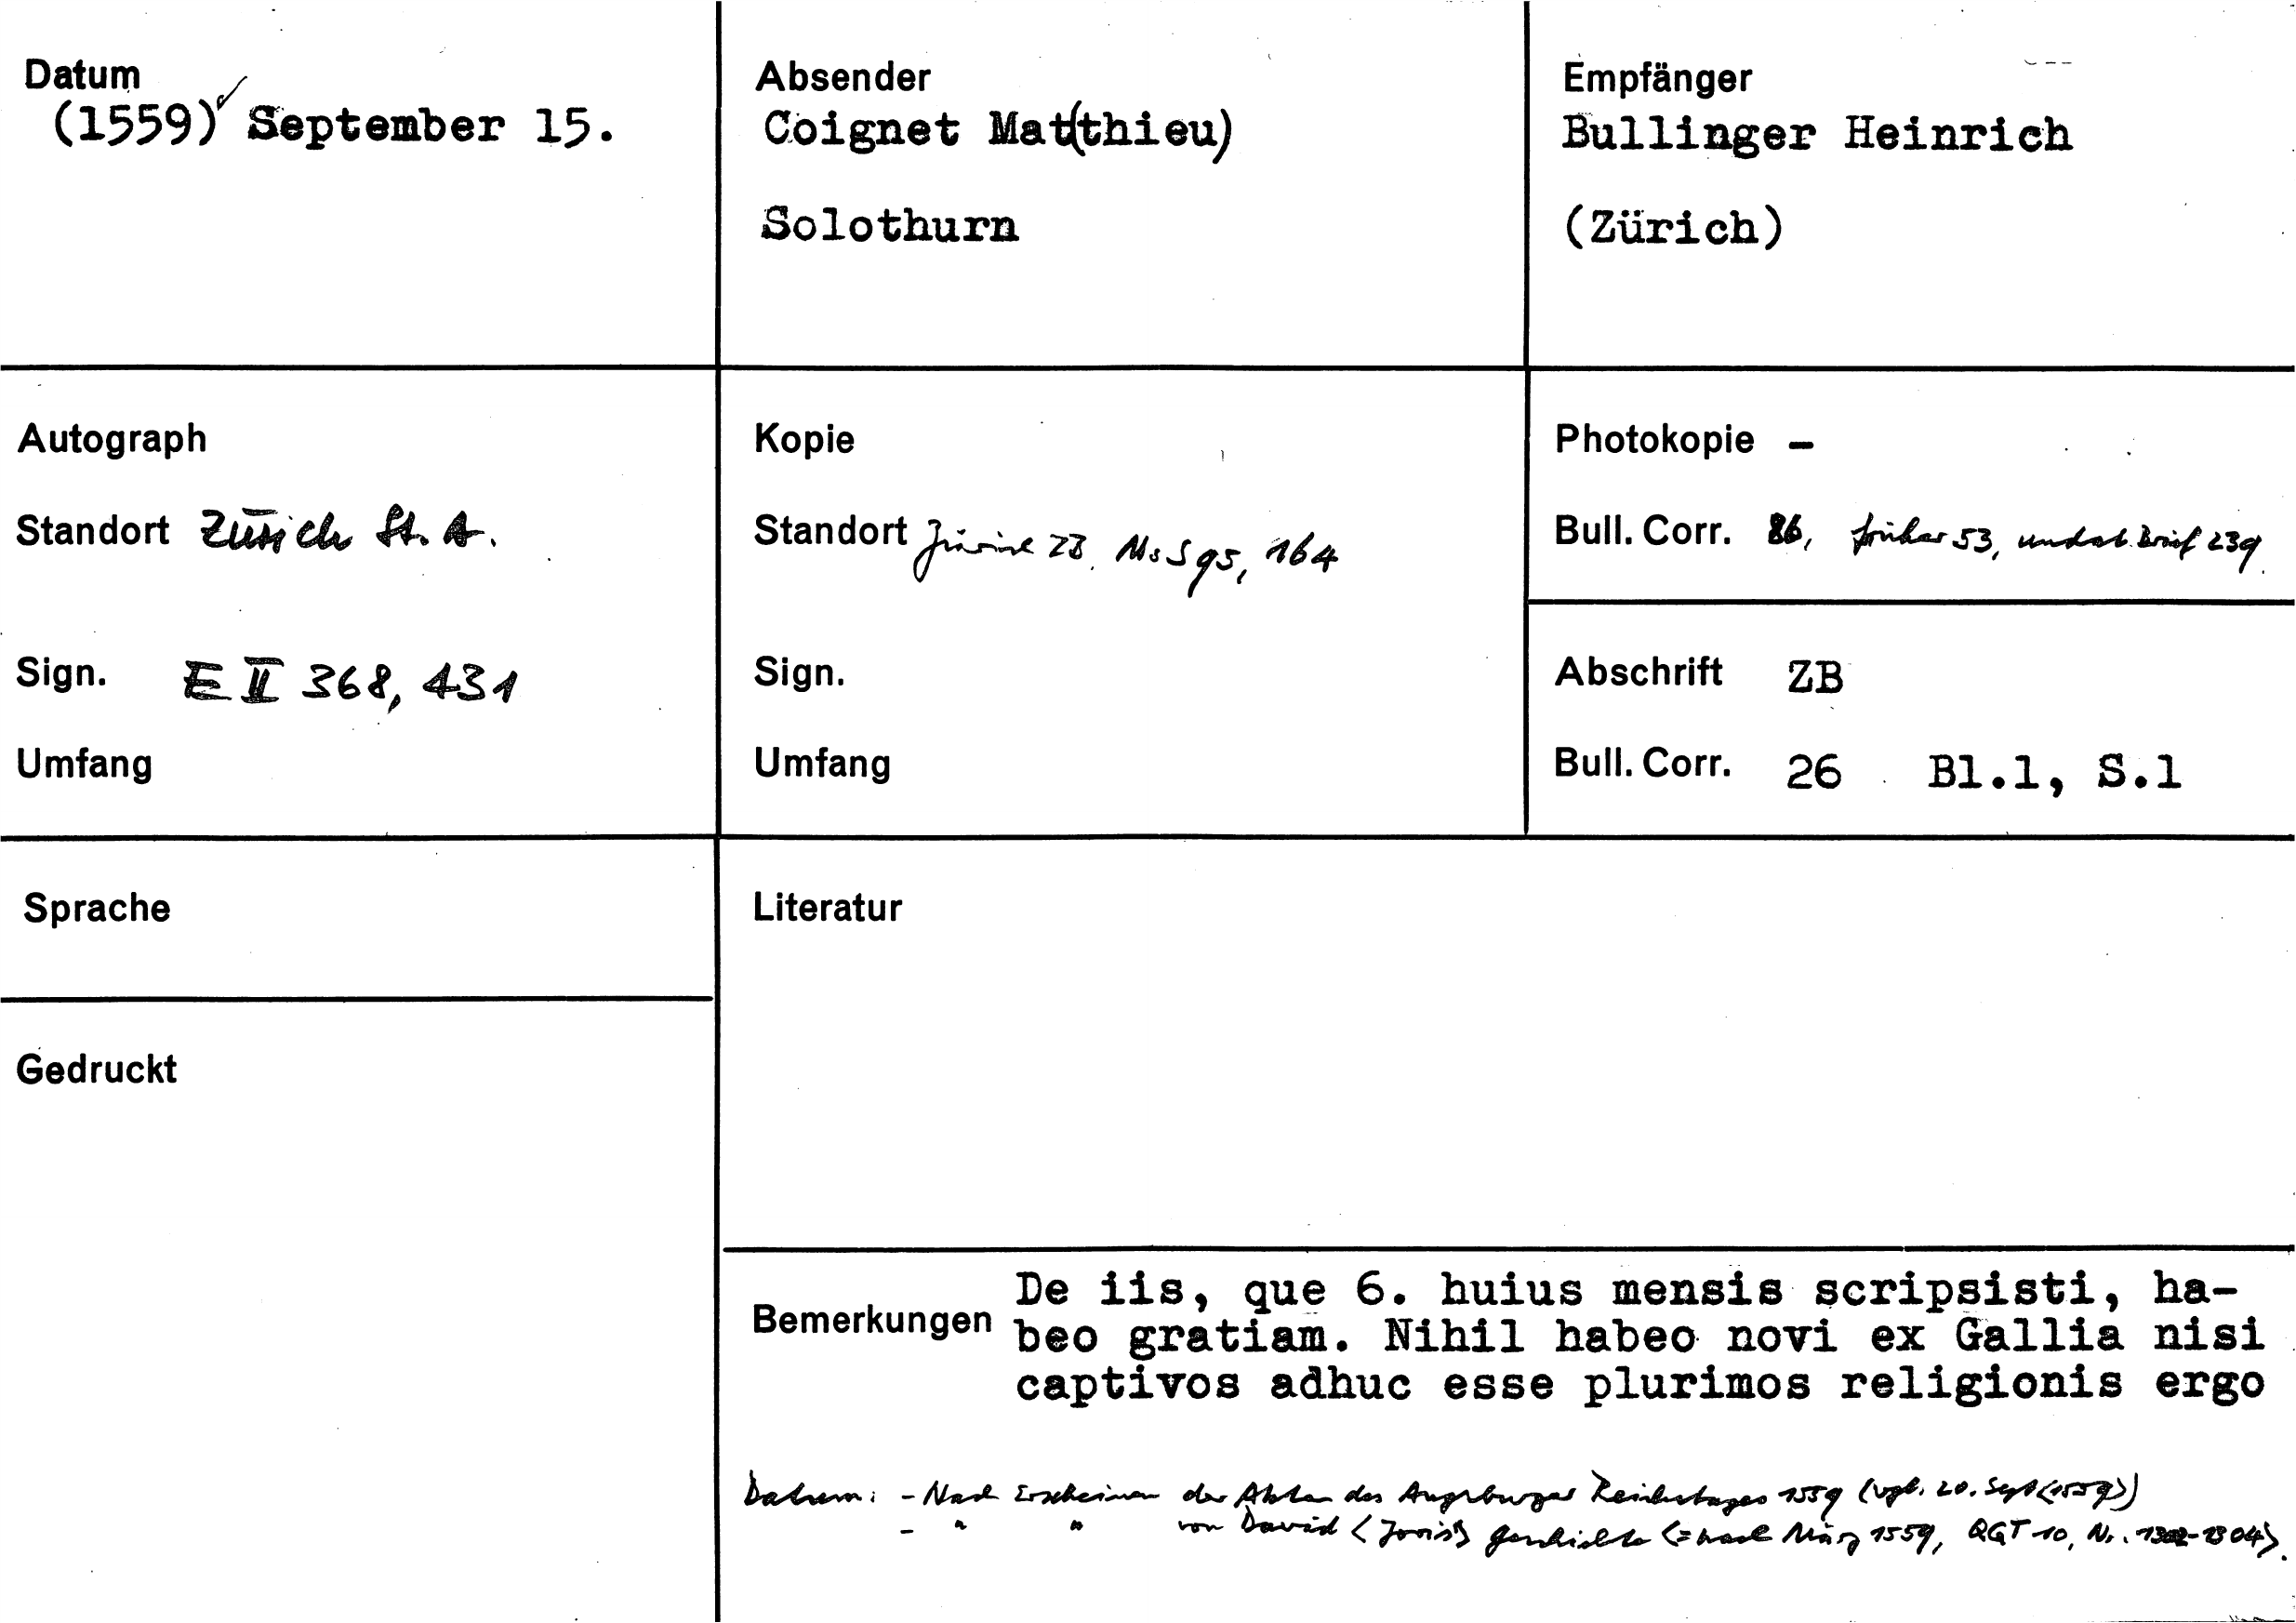 Datum
(1559) September 15.
Absender
Coignet Mat(thieu)
Solothurn
Empfänger
Bullinger Heinrich
(Zürich)
Autograph
Standort Zürich St. A.
Sign. E II 368, 431
Umfang
Kopie
Standort Zürich ZB. Ms S 95, 164
Sign.
Umfang
Photokopie –
Bull. Corr. 86, früher 53, undat. Brief 239.
Abschrift ZB
Bull. Corr. 26 Bl.1, S.1
Sprache
Gedruckt
Literatur
Bemerkungen
De iis, que 6. huius mensis scripsisti, ha-
beo gratiam. Nihil habeo novi ex Gallia nisi
captivos adhuc esse plurimos religionis ergo
Datum: - Nach Erscheinen der Akten des Augsburger Reichstages 1559 (vgl. 20. Sept <1559>)
- " " von David <Joris'> Geschichte (= nach März 1559, QGT 10, Nr. 1302-1304).